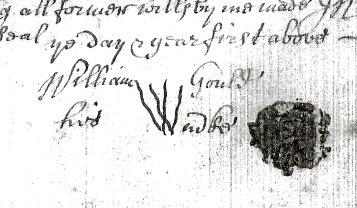 all former wills by me made In
seal ye day & year first above
William Gould
his W marke